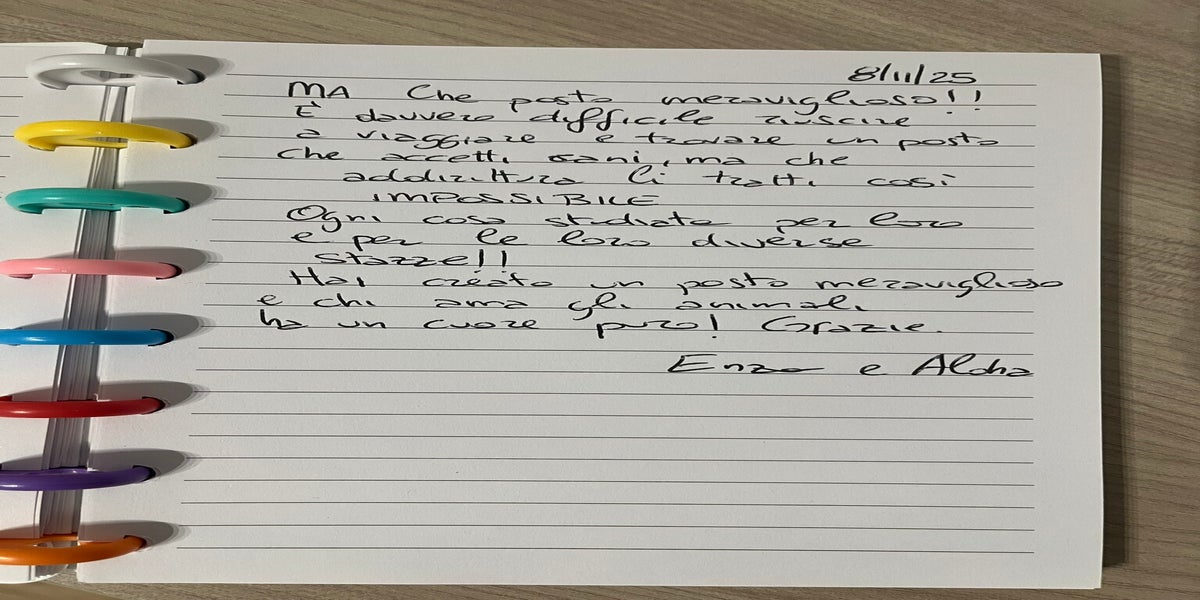 8/11/25
MA Che posto meraviglioso!!
È davvero difficile riuscire
a viaggiare e trovare un posto
che accetti cani, ma che
addirittura li tratti così
IMPOSSIBILE
Ogni cosa studiata per loro
e per le loro diverse
stazze!!
Hai creato un posto meraviglioso
e chi ama gli animali
ha un cuore puro! Grazie.
Enzo e Aloha